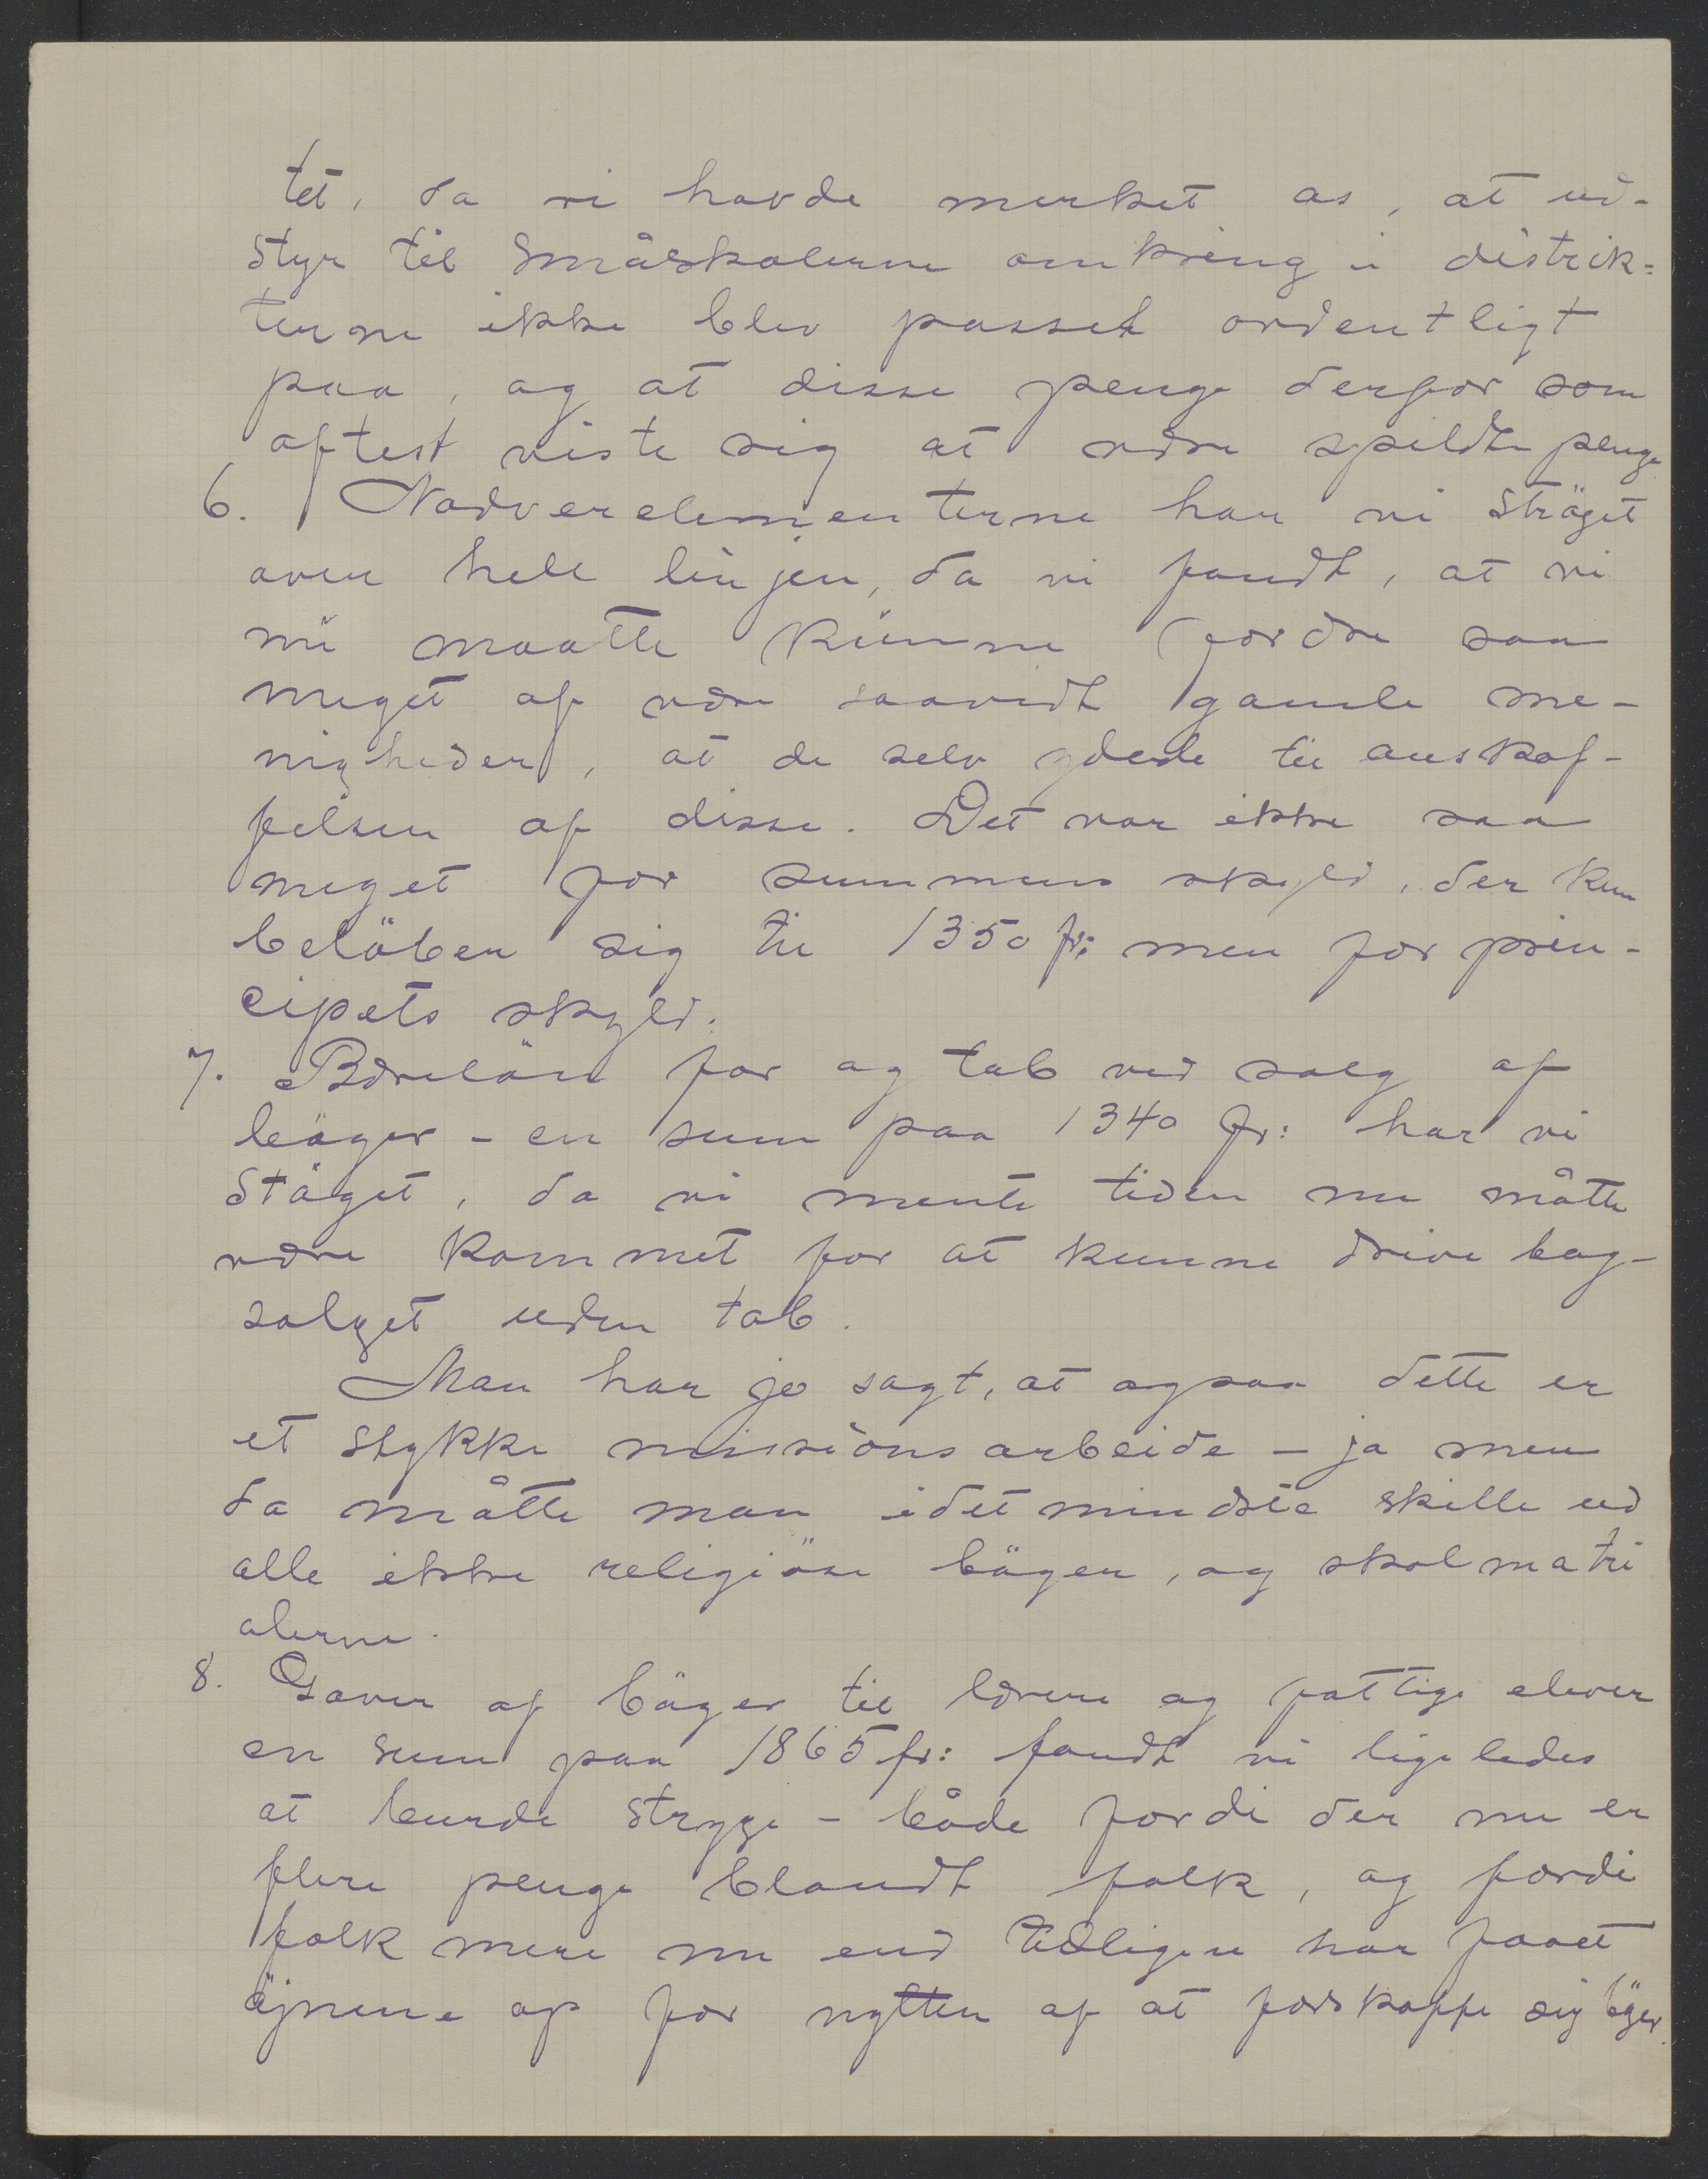 tet, da vi havde merket os, at ud-
styr til småskolerne omkring i distrik=
terne ikke blev passet ordentligt
paa, og at disse penge derfor som
oftest viste sig at være spildte penge.
6. Nadverelementerne har vi ströget
over hele linjen, da vi fandt, at vi
nu maatte kunne fordre saa
meget af våre saavidt gamle me-
nigheder, at de selv ydede til anskaf-
felsen af disse. Det var ikke saa
meget for summens skyld, der kun
belöber sig til 1350 fr: men for prin-
cipets skyld.
7. Bærelön for og tab ved salg af
böger - en sum paa 1340 fr: har vi
ströget, da vi mente tiden nu måtte
være kommet for at kunne drive bog-
salget uden tab.
Man har jo sagt, at ogsaa dette er
et stykke missionsarbeide - ja men
da måtte man idetmindste skille ud
alle ikke religiöse böger, og skolmatri
alerne.
8. Gaver af böger til lærere og fattige elever
en sum paa 1865 fr: fandt vi ligeledes
at burde stryge - både fordi der nu er
flere penge blandt folk, og fordi
folk mere nu end tidligere har faaet
öjnene op for nytten af at forskaffe sig böger.